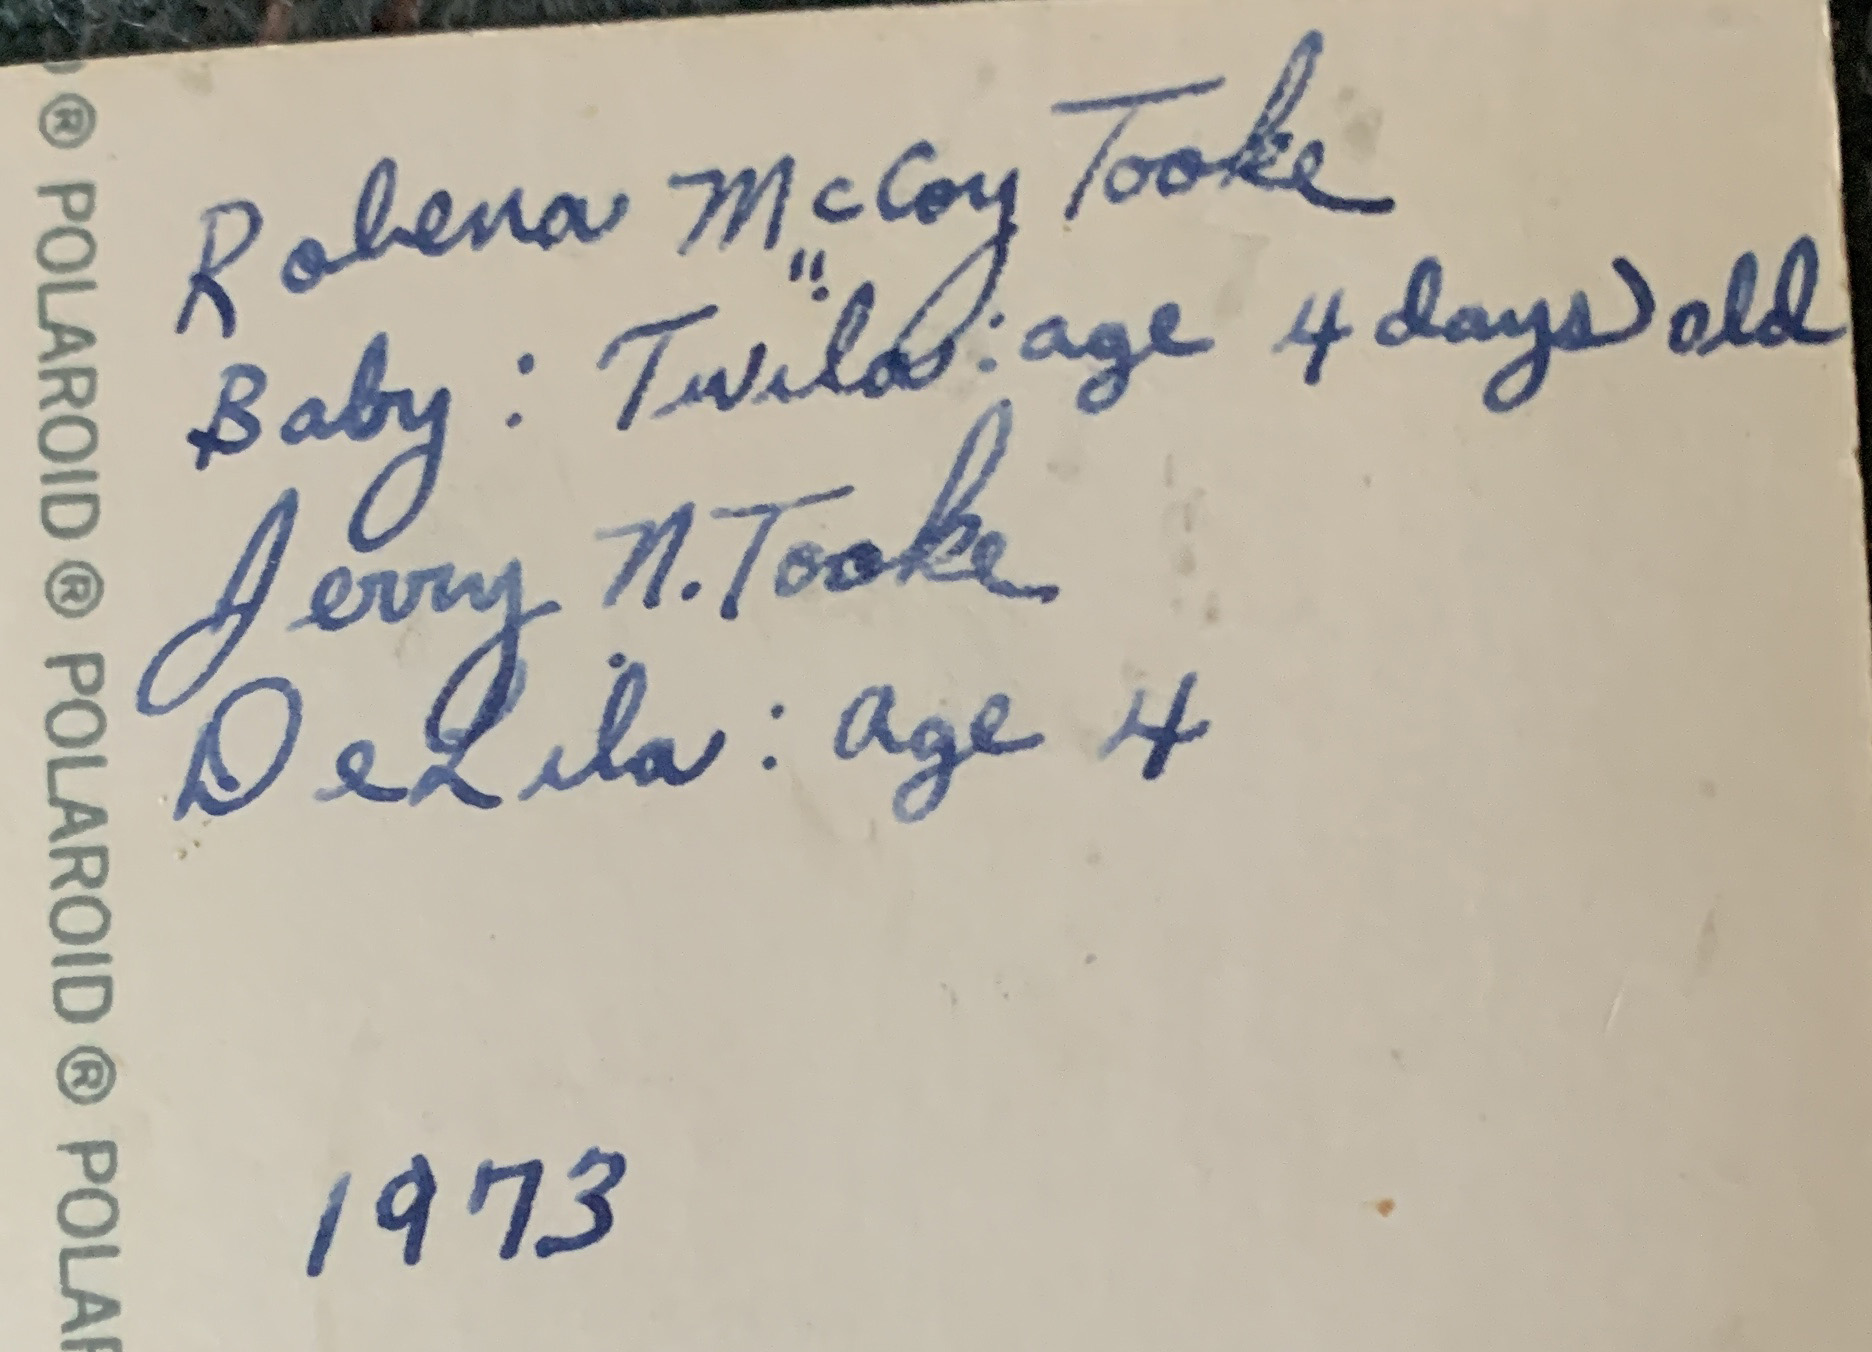 ® POLAROID ® POLAROID ® POLAR
Robena McCoy Tooke
Baby : Twila : age 4 days old
Jerry N. Tooke
DeLila : age 4
1973